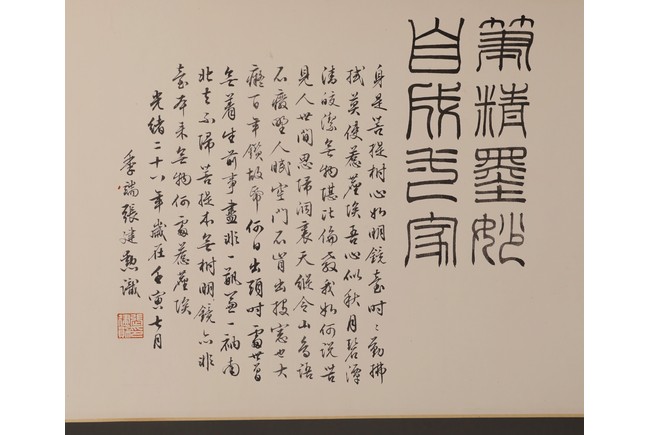 筆精墨妙
自成弌家
身是菩提樹心如明鏡臺時時勤拂
拭莫使惹塵埃吾心似秋月碧潭
清皎潔無物堪比倫教我如何說苦
見人世間思歸洞裏天縱令山鳥語
不廢野人眠空門不肯出投窓也大
癡百年鑽故帋何日出頭時處世曾
無着生前事盡非一瓶兼一衲南
北去如歸菩提本無樹明鏡亦非
臺本來無物何處惹塵埃
光緒二十八年歲在壬寅七月
季端張建勳識